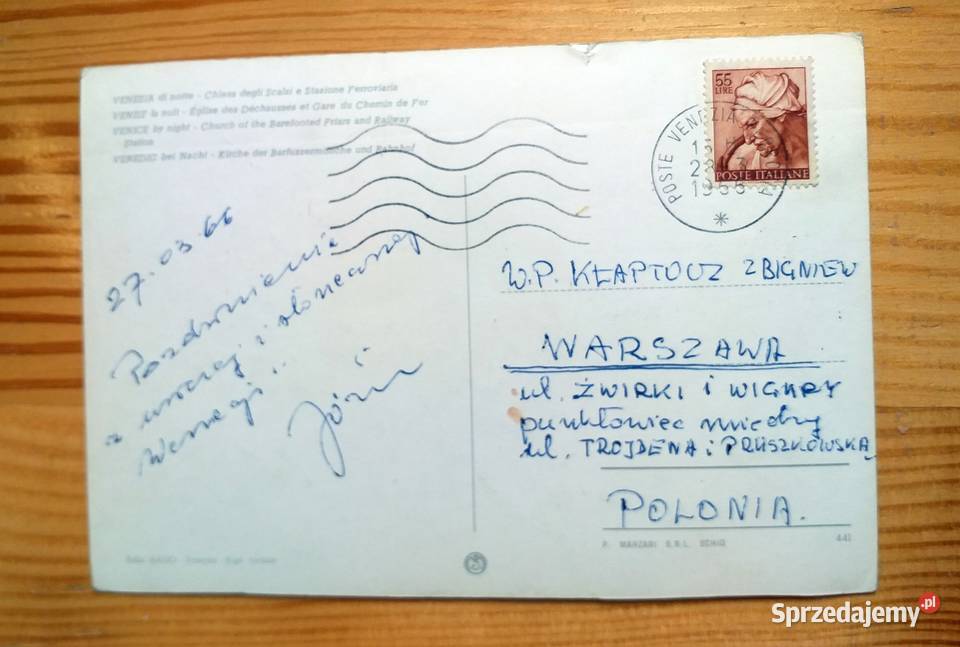 VENEZIA di notte - Chiesa degli Scalzi e Stazione Ferroviaria
VENISE la nuit - Église des Déchaussés et Gare du Chemin de Fer
VENICE by night - Church of the Barefooted Friars and Railway
Station
VENEDIG bei Nacht - Kirche der Barfüssermönche und Bahnhof
55
LIRE
POSTE ITALIANE
POSTE VENEZIA
27.03.66
Pozdrowienia
z uroczej i słonecznej
Wenecji..
Józio
W.P. KŁAPTOCZ ZBIGNIEW
WARSZAWA
ul. ŻWIRKI i WIGURY
punktowiec między
ul. TROJDENA i PRUSZKOWSKĄ
POLONIA.
P. MARZARI S.R.L. SCHIO
441
Sprzedajemy.pl